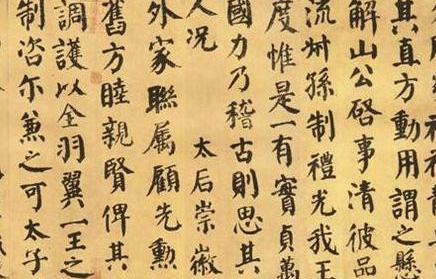 其直方動用謂之懸
解山公啓事清彼品
流叔孫制禮光我王
度惟是一有實貞萬
國力乃稽古則思其
人況　太后崇徽
外家聯属顧先勳
舊方睦親賢俾其
調護以全羽翼一王之
制咨尓兼之可太子